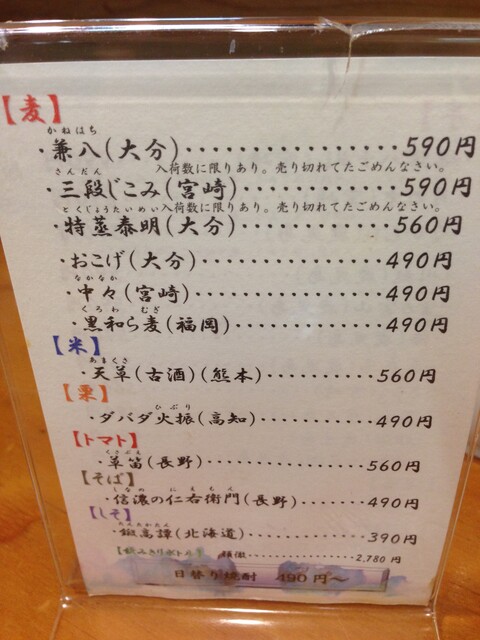 【麦】
かねはち
・兼八(大分)・・・・・・・・・・・・・・・590円
入荷数に限りあり。売り切れてたごめんなさい。
さんだん
・三段じこみ(宮崎)・・・・・・・・・・・590円
入荷数に限りあり。売り切れてたごめんなさい。
とくじょうたいめい
・特蒸泰明(大分)・・・・・・・・・・・・560円
・おこげ(大分)・・・・・・・・・・・・・・490円
なかなか
・中々(宮崎)・・・・・・・・・・・・・・・490円
くろわ むぎ
・黒和ら麦(福岡)・・・・・・・・・・・・490円
【米】
あまくさ
・天草(古酒)(熊本)・・・・・・・・・・560円
【栗】
ひぶり
・ダバダ火振(高知)・・・・・・・・・・・490円
【トマト】
くさぶえ
・草笛(長野)・・・・・・・・・・・・・・・560円
【そば】
しなの にえもん
・信濃の仁右衛門(長野)・・・・・・・490円
【しそ】
たんたかたん
・鍛高譚(北海道)・・・・・・・・・・・・390円
2,780円
日替り焼酎 490円～